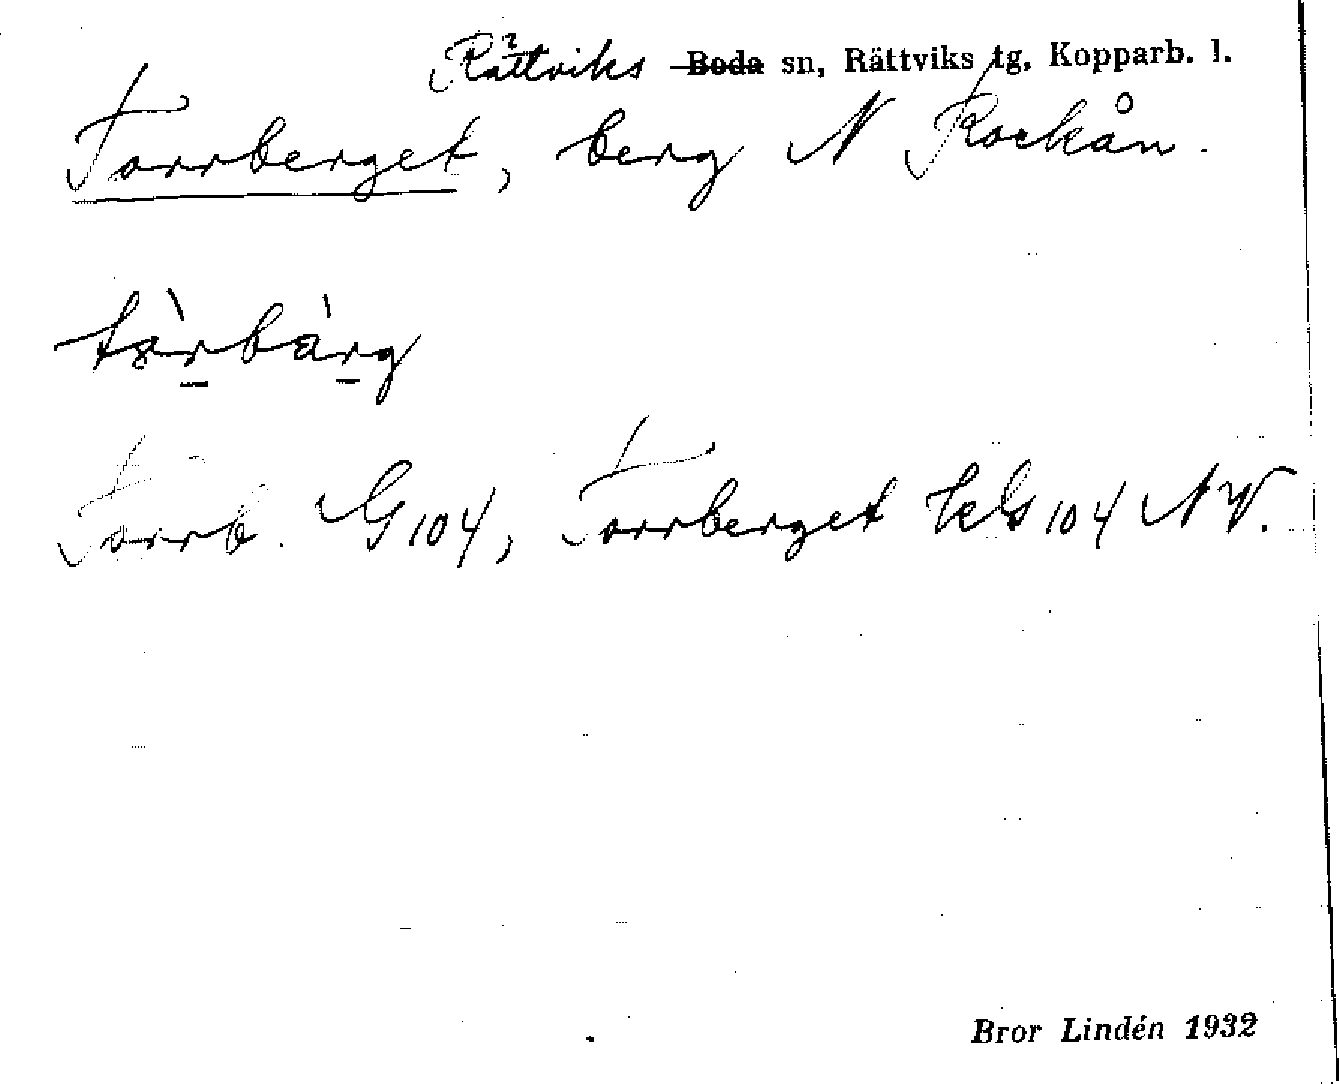 Rättviks Boda sn, Rättviks tg, Kopparb. l.
Torrberget, berg N Rockån.
Torrb. G104, Torrberget kG104 NV.
Bror Lindén 1932